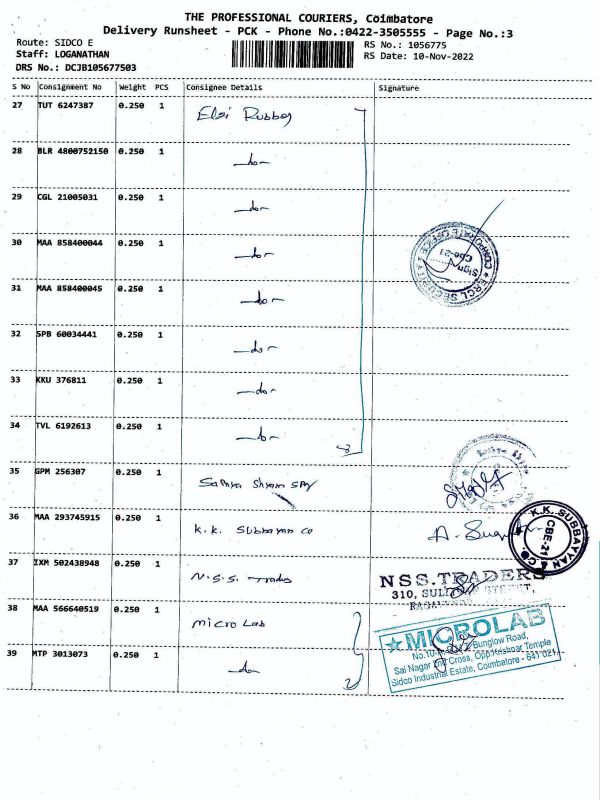 THE PROFESSIONAL COURIERS, Coimbatore
Delivery Runsheet - PCK - Phone No.:0422-3505555 - Page No.:3
Route: SIDCO E
Staff: LOGANATHAN
DRS No.: DCJB105677503
RS No.: 1056775
RS Date: 10-Nov-2022
S No Consignment No Weight PCS Consignee Details Signature
27 TUT 6247387 0.250 1
28 BLR 4800752150 0.250 1 -do-
29 CGL 21005031 0.250 1 -do-
30 MAA 858400044 0.250 1 -do-
31 MAA 858400045 0.250 1 -do-
32 SPB 60034441 0.250 1 -do-
33 KKU 376811 0.250 1 -do-
34 TVL 6192613 0.250 1 -do-
35 GPM 256307 0.250 1
36 MAA 293745915 0.250 1 K.K. Subbayan co
37 IXM 502438948 0.250 1 N.S.S. Traders
38 MAA 566640519 0.250 1 Micro Lab
39 MTP 3013073 0.250 1 -do-
ERGL SECURITY CORPORATE OFFICE
Sign
Cbe-21
K.K. SUBBAYYAN & CO
CBE-21
NSS.TRADERS
310, STREET,
MICROLAB
Bunglow Road,
Sai Nagar 2nd Cross, Opp.Krishnar Temple
Sidco Industrial Estate, Coimbatore - 641 021.